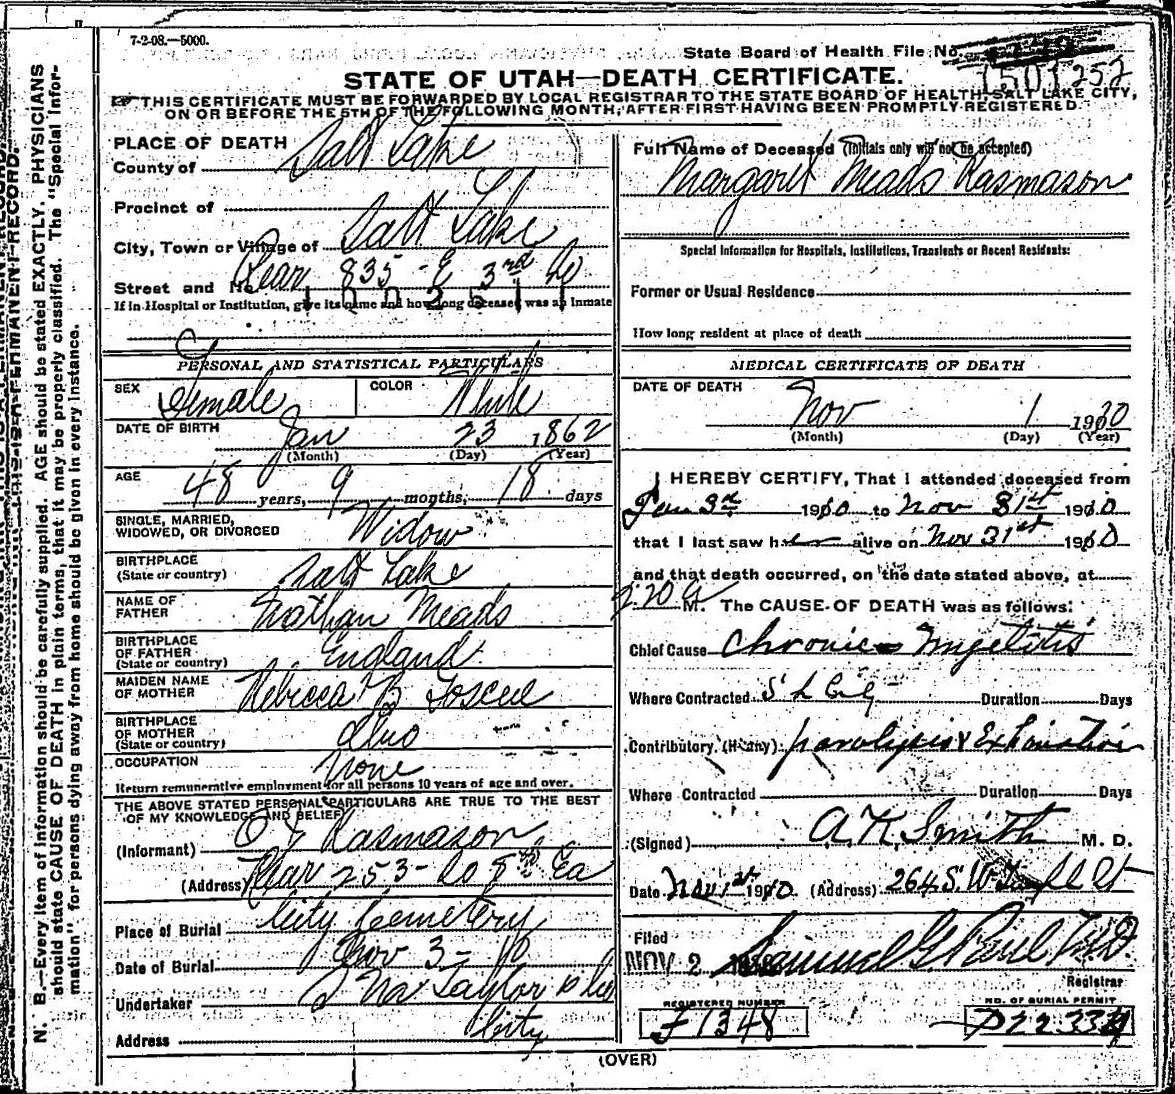 7-2-08.—5000.
State Board of Health File No.
1501252
STATE OF UTAH—DEATH CERTIFICATE.
THIS CERTIFICATE MUST BE FORWARDED BY LOCAL REGISTRAR TO THE STATE BOARD OF HEALTH, SALT LAKE CITY,
ON OR BEFORE THE 5TH OF THE FOLLOWING MONTH, AFTER FIRST HAVING BEEN PROMPTLY REGISTERED.
PLACE OF DEATH
County of Salt Lake
Precinct of
City, Town or Village of Salt Lake
Street and No. Rear 835 - E 3rd So
If in Hospital or Institution, give its name and how long deceased was an Inmate
1002511
PERSONAL AND STATISTICAL PARTICULARS
SEX Female COLOR White
DATE OF BIRTH Jan 23, 1862
(Month) (Day) (Year)
AGE 48 years, 9 months, 18 days
SINGLE, MARRIED,
WIDOWED, OR DIVORCED Widow
BIRTHPLACE
(State or country) Salt Lake
NAME OF
FATHER Nathan Meads
BIRTHPLACE
OF FATHER
(State or country) England
MAIDEN NAME
OF MOTHER Rebicca B
BIRTHPLACE
OF MOTHER
(State or country)
OCCUPATION None
Return remunerative employment for all persons 10 years of age and over.
THE ABOVE STATED PERSONAL PARTICULARS ARE TRUE TO THE BEST
OF MY KNOWLEDGE AND BELIEF
(Informant) Rasmason
(Address) Rear 253- So 8th Ea
Place of Burial City Cemetery
Date of Burial Nov 3 - 10
Undertaker Taylor
Address City
Full Name of Deceased (Initials only will not be accepted)
Margaret Meads Rasmason
Special Information for Hospitals, Institutions, Transients or Recent Residents:
Former or Usual Residence
How long resident at place of death
MEDICAL CERTIFICATE OF DEATH
DATE OF DEATH Nov 1 1910
(Month) (Day) (Year)
I HEREBY CERTIFY, That I attended deceased from
Jan 3rd 1910 to Nov 31st 1910
that I last saw her alive on Nov 31st 1910
and that death occurred, on the date stated above, at
M. The CAUSE OF DEATH was as follows:
Chief Cause Chronic Myelitis
Where Contracted S L City Duration Days
Contributory (If any) paralysis & Exhaustion
Where Contracted Duration Days
(Signed) A. K. Smith M. D.
Date Nov 1st 1910 (Address) 264 S. W Templ St
Filed
NOV 2 1910 Samuel G. Paul M.D.
Registrar
REGISTERED NUMBER
F1348
NO. OF BURIAL PERMIT
(OVER)
N. B.—Every item of information should be carefully supplied. AGE should be stated EXACTLY. PHYSICIANS
should state CAUSE OF DEATH in plain terms, that it may be properly classified. The "Special Infor-
mation" for persons dying away from home should be given in every instance.